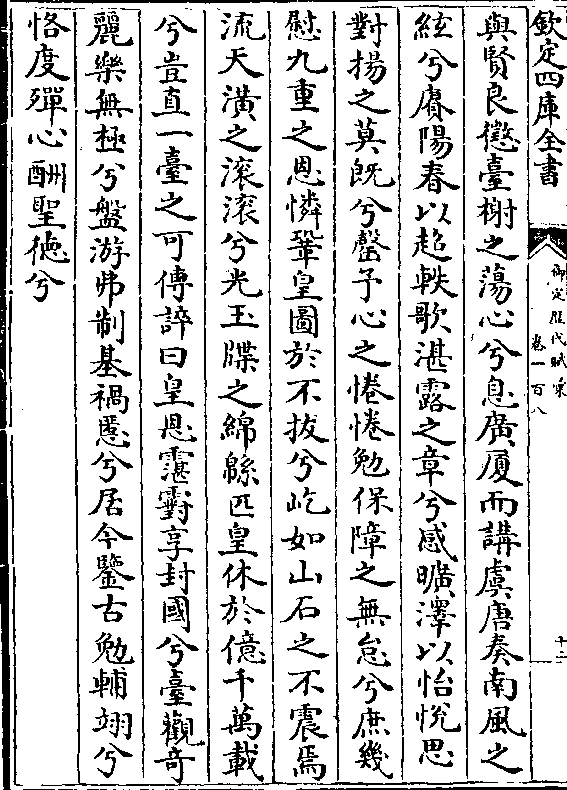 欽定四庫全書
御定歷代賦彙
卷一百八
十二
與賢良懲臺榭之蕩心兮息廣厦而講虞唐奏南風之
絃兮賡陽春以超軼歌湛露之章兮感曠澤以怡悦思
對揚之莫既兮罄予心之惓惓勉保障之無怠兮庶幾
慰九重之恩憐鞏皇圖於不拔兮屹如山石之不震焉
流天潢之滚滚兮光玉牒之綿緜匹皇休於億千萬載
兮豈直一臺之可傳誶曰皇恩霮霨享封國兮臺觀奇
麗樂無極兮盤游弗制基禍慝兮居今鑒古勉輔翊兮
恪度殫心酬聖德兮